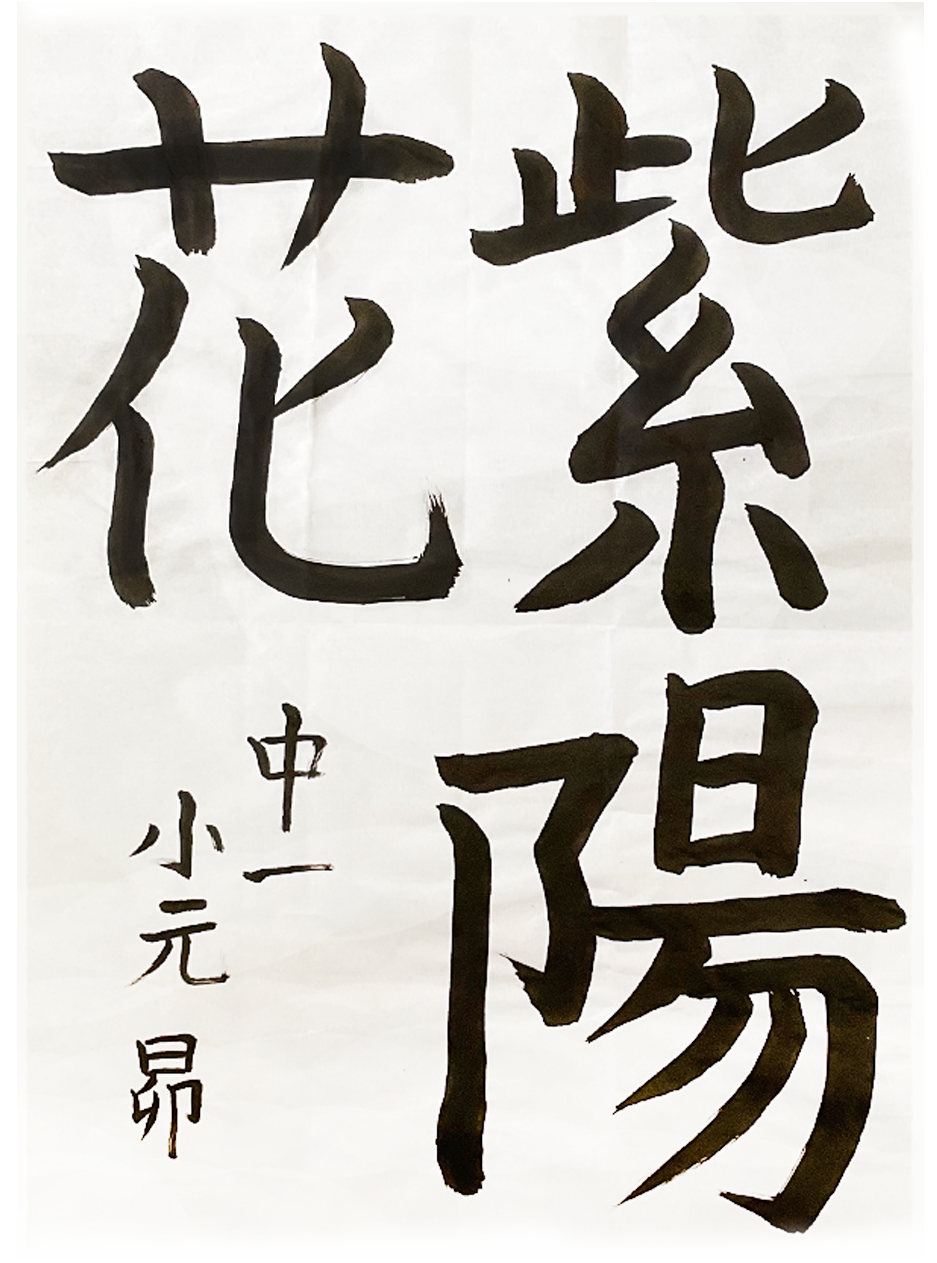 紫陽
花
中一
小元 昴